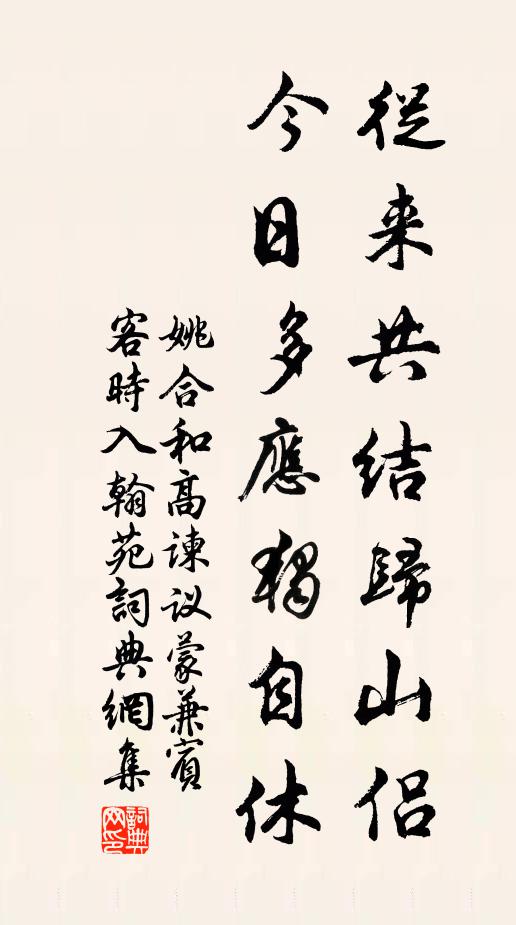 從来共結歸山侶
今日多應獨自休
姚合和高諫议蒙兼賓
客時入翰苑詞典網集
詞典网印